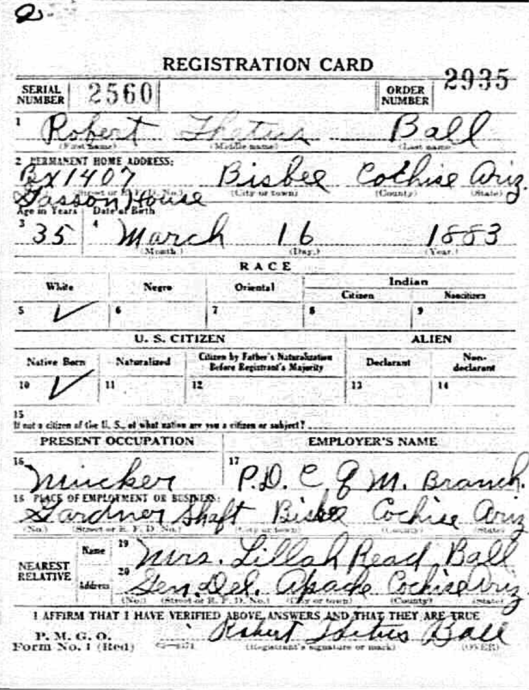 2
REGISTRATION CARD
SERIAL NUMBER 2560 ORDER NUMBER 2935
1 Robert Ball
(First name) (Middle name) (Last name)
2 PERMANENT HOME ADDRESS:
Bx 1407 Bisbee Cochise Ariz
(Street or R. F. D. No.) (City or town) (County) (State)
House
Age in Years Date of Birth
3 35 4 March 16 1883
(Month.) (Day.) (Year.)
RACE
White Negro Oriental Indian
Citizen Noncitizen
5 ✓ 6 7 8 9
U. S. CITIZEN ALIEN
Native Born Naturalized Citizen by Father's Naturalization Before Registrant's Majority Declarant Non-declarant
10 ✓ 11 12 13 14
15
If not a citizen of the U. S., of what nation are you a citizen or subject?
PRESENT OCCUPATION EMPLOYER'S NAME
16 Mucker 17 P. D. C Q M. Branch.
18 PLACE OF EMPLOYMENT OR BUSINESS:
Gardner Shaft Bisbee Cochise Ariz
(No.) (Street or R. F. D. No.) (City or town) (County) (State)
NEAREST RELATIVE
Name 19 Mrs. Lillah Read Ball
Address 20 Gen. Del. Apache Cochise Ariz
(No.) (Street or R. F. D. No.) (City or town) (County) (State)
I AFFIRM THAT I HAVE VERIFIED ABOVE ANSWERS AND THAT THEY ARE TRUE
P. M. G. O.
Form No. 1 (Red) Robert Ball
(Registrant's signature or mark) (OVER)